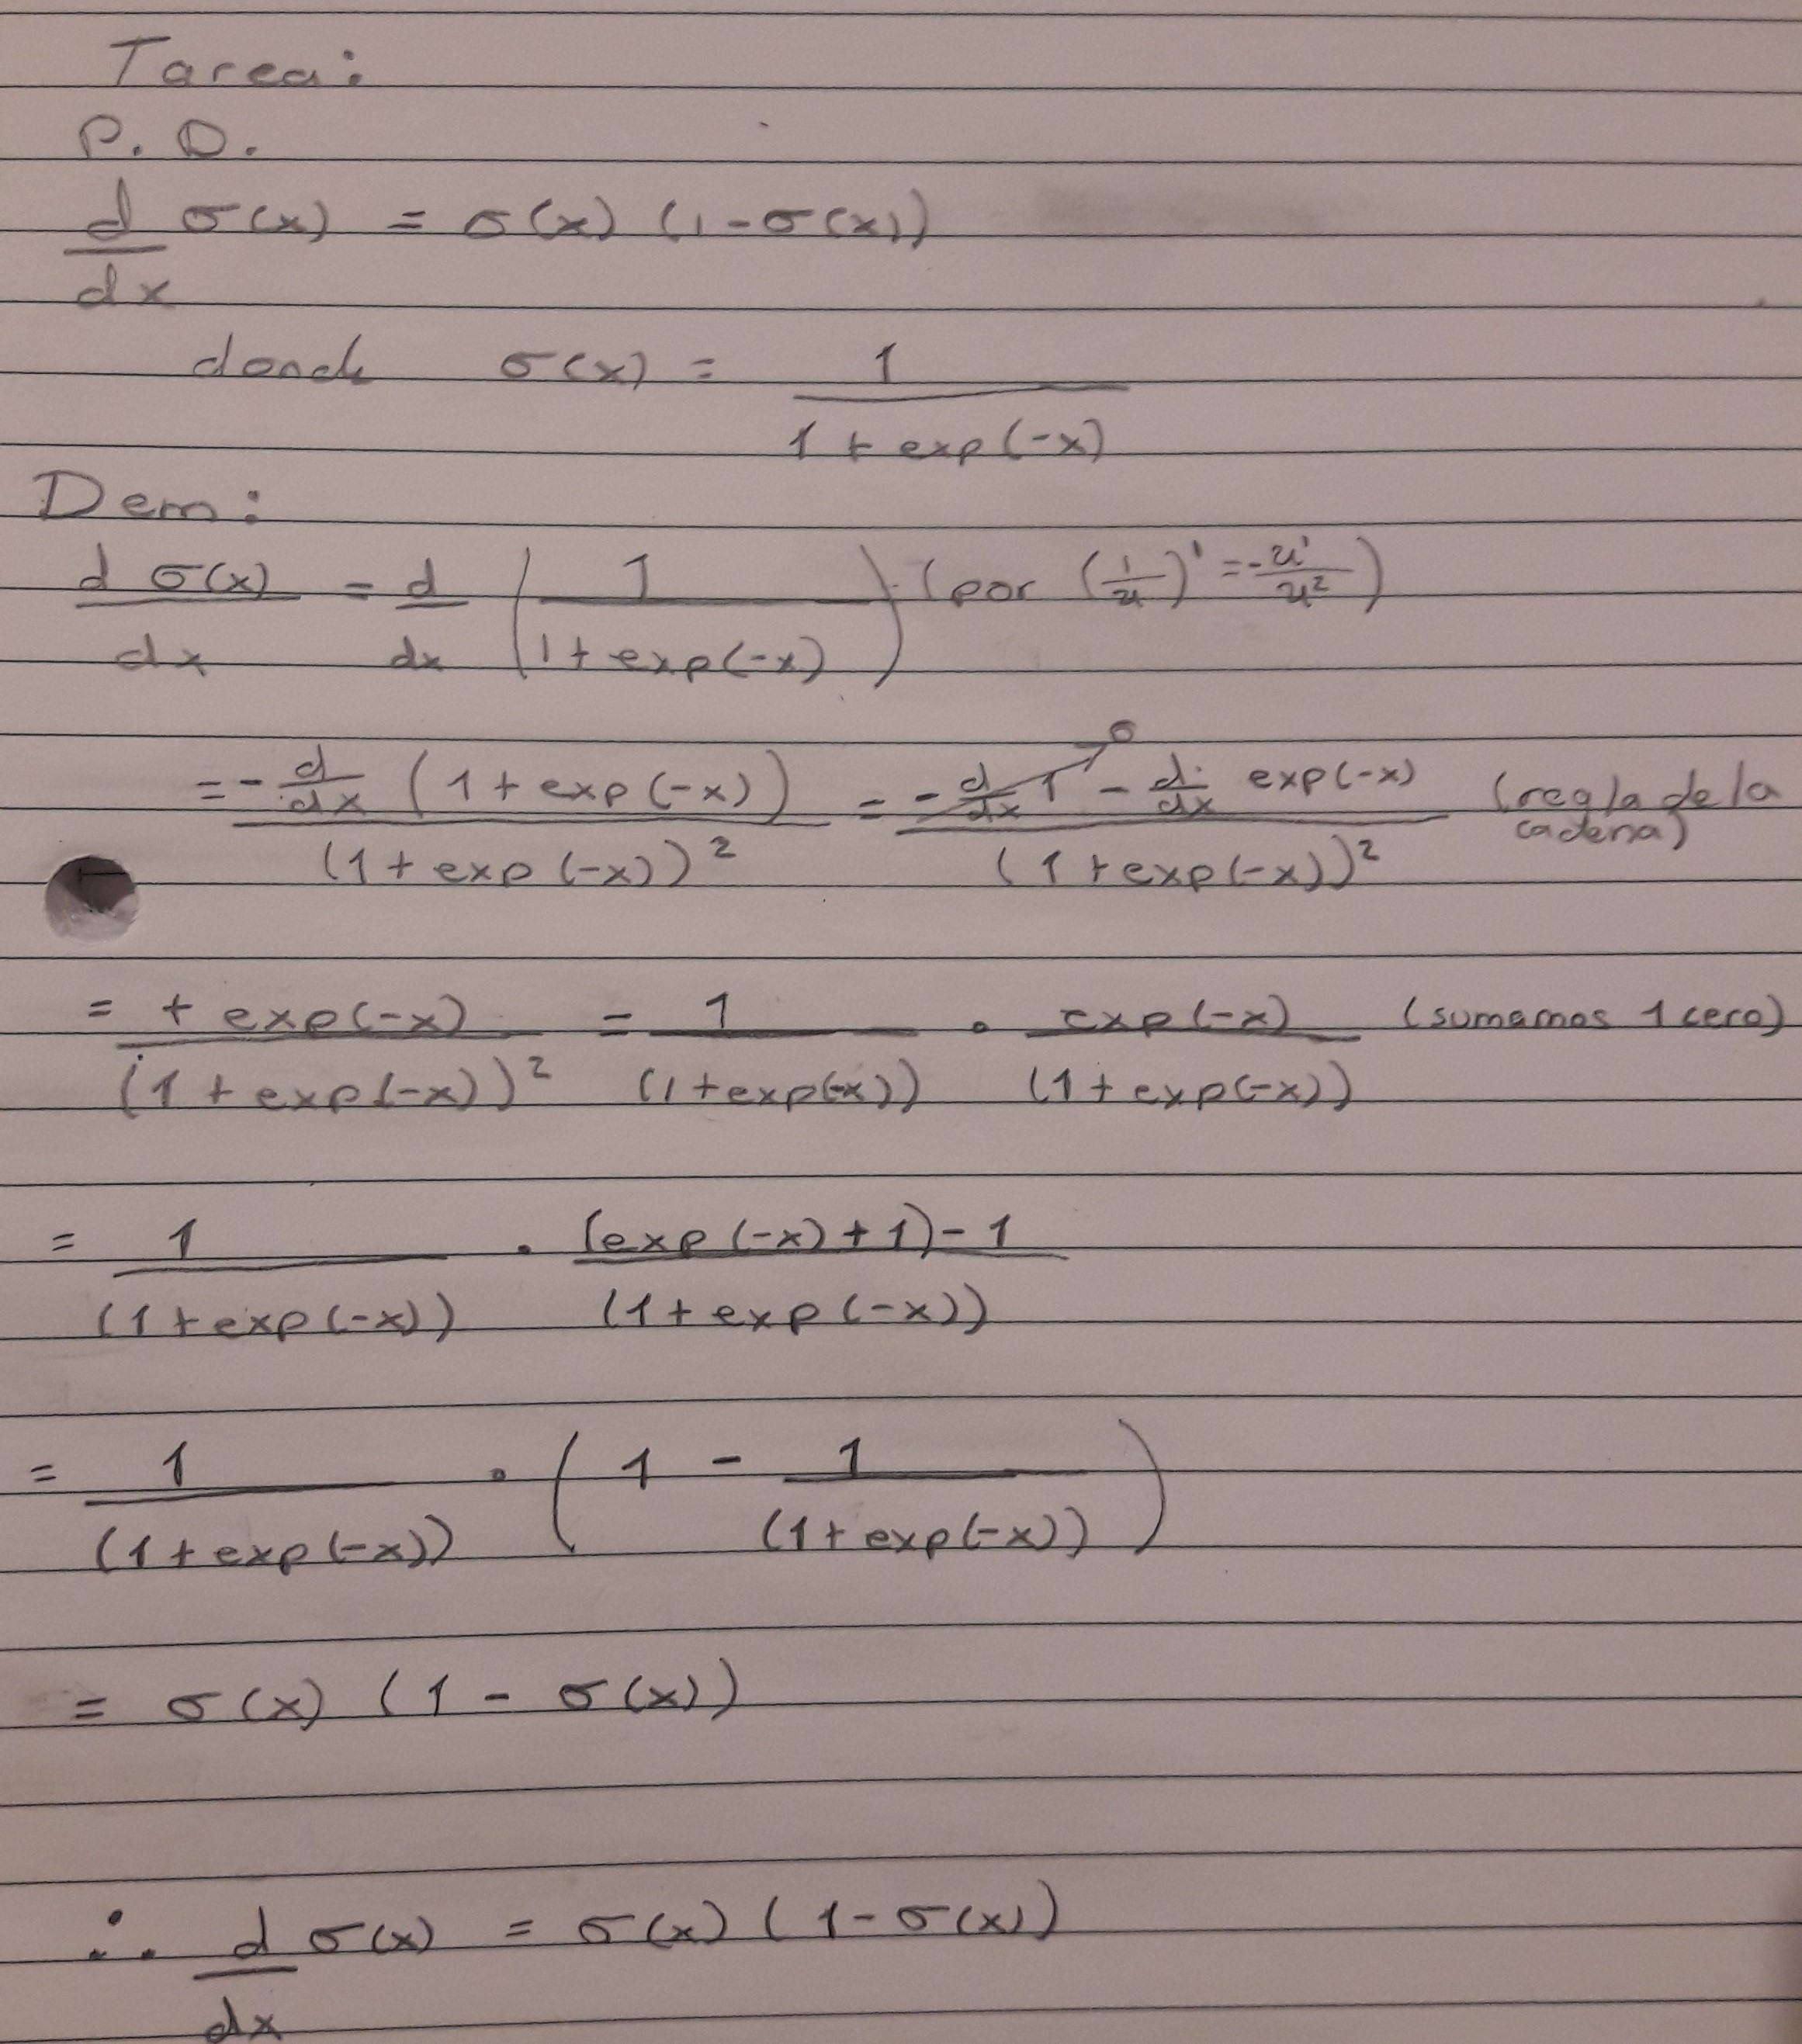 Tarea:
P. D.
d/dx σ(x) = σ(x) (1 - σ(x))
donde σ(x) = 1 / (1 + exp(-x))
Dem:
d σ(x)/dx = d/dx (1 / (1 + exp(-x))) (por (1/u)' = -u'/u²)
= -d/dx (1 + exp(-x)) / (1 + exp(-x))² = (-d/dx 1 → 0 - d/dx exp(-x)) / (1 + exp(-x))² (regla de la cadena)
= + exp(-x) / (1 + exp(-x))² = 1 / (1 + exp(-x)) · exp(-x) / (1 + exp(-x)) (sumamos 1 cero)
= 1 / (1 + exp(-x)) · ((exp(-x) + 1) - 1) / (1 + exp(-x))
= 1 / (1 + exp(-x)) · (1 - 1 / (1 + exp(-x)))
= σ(x) (1 - σ(x))
∴ d/dx σ(x) = σ(x) (1 - σ(x))